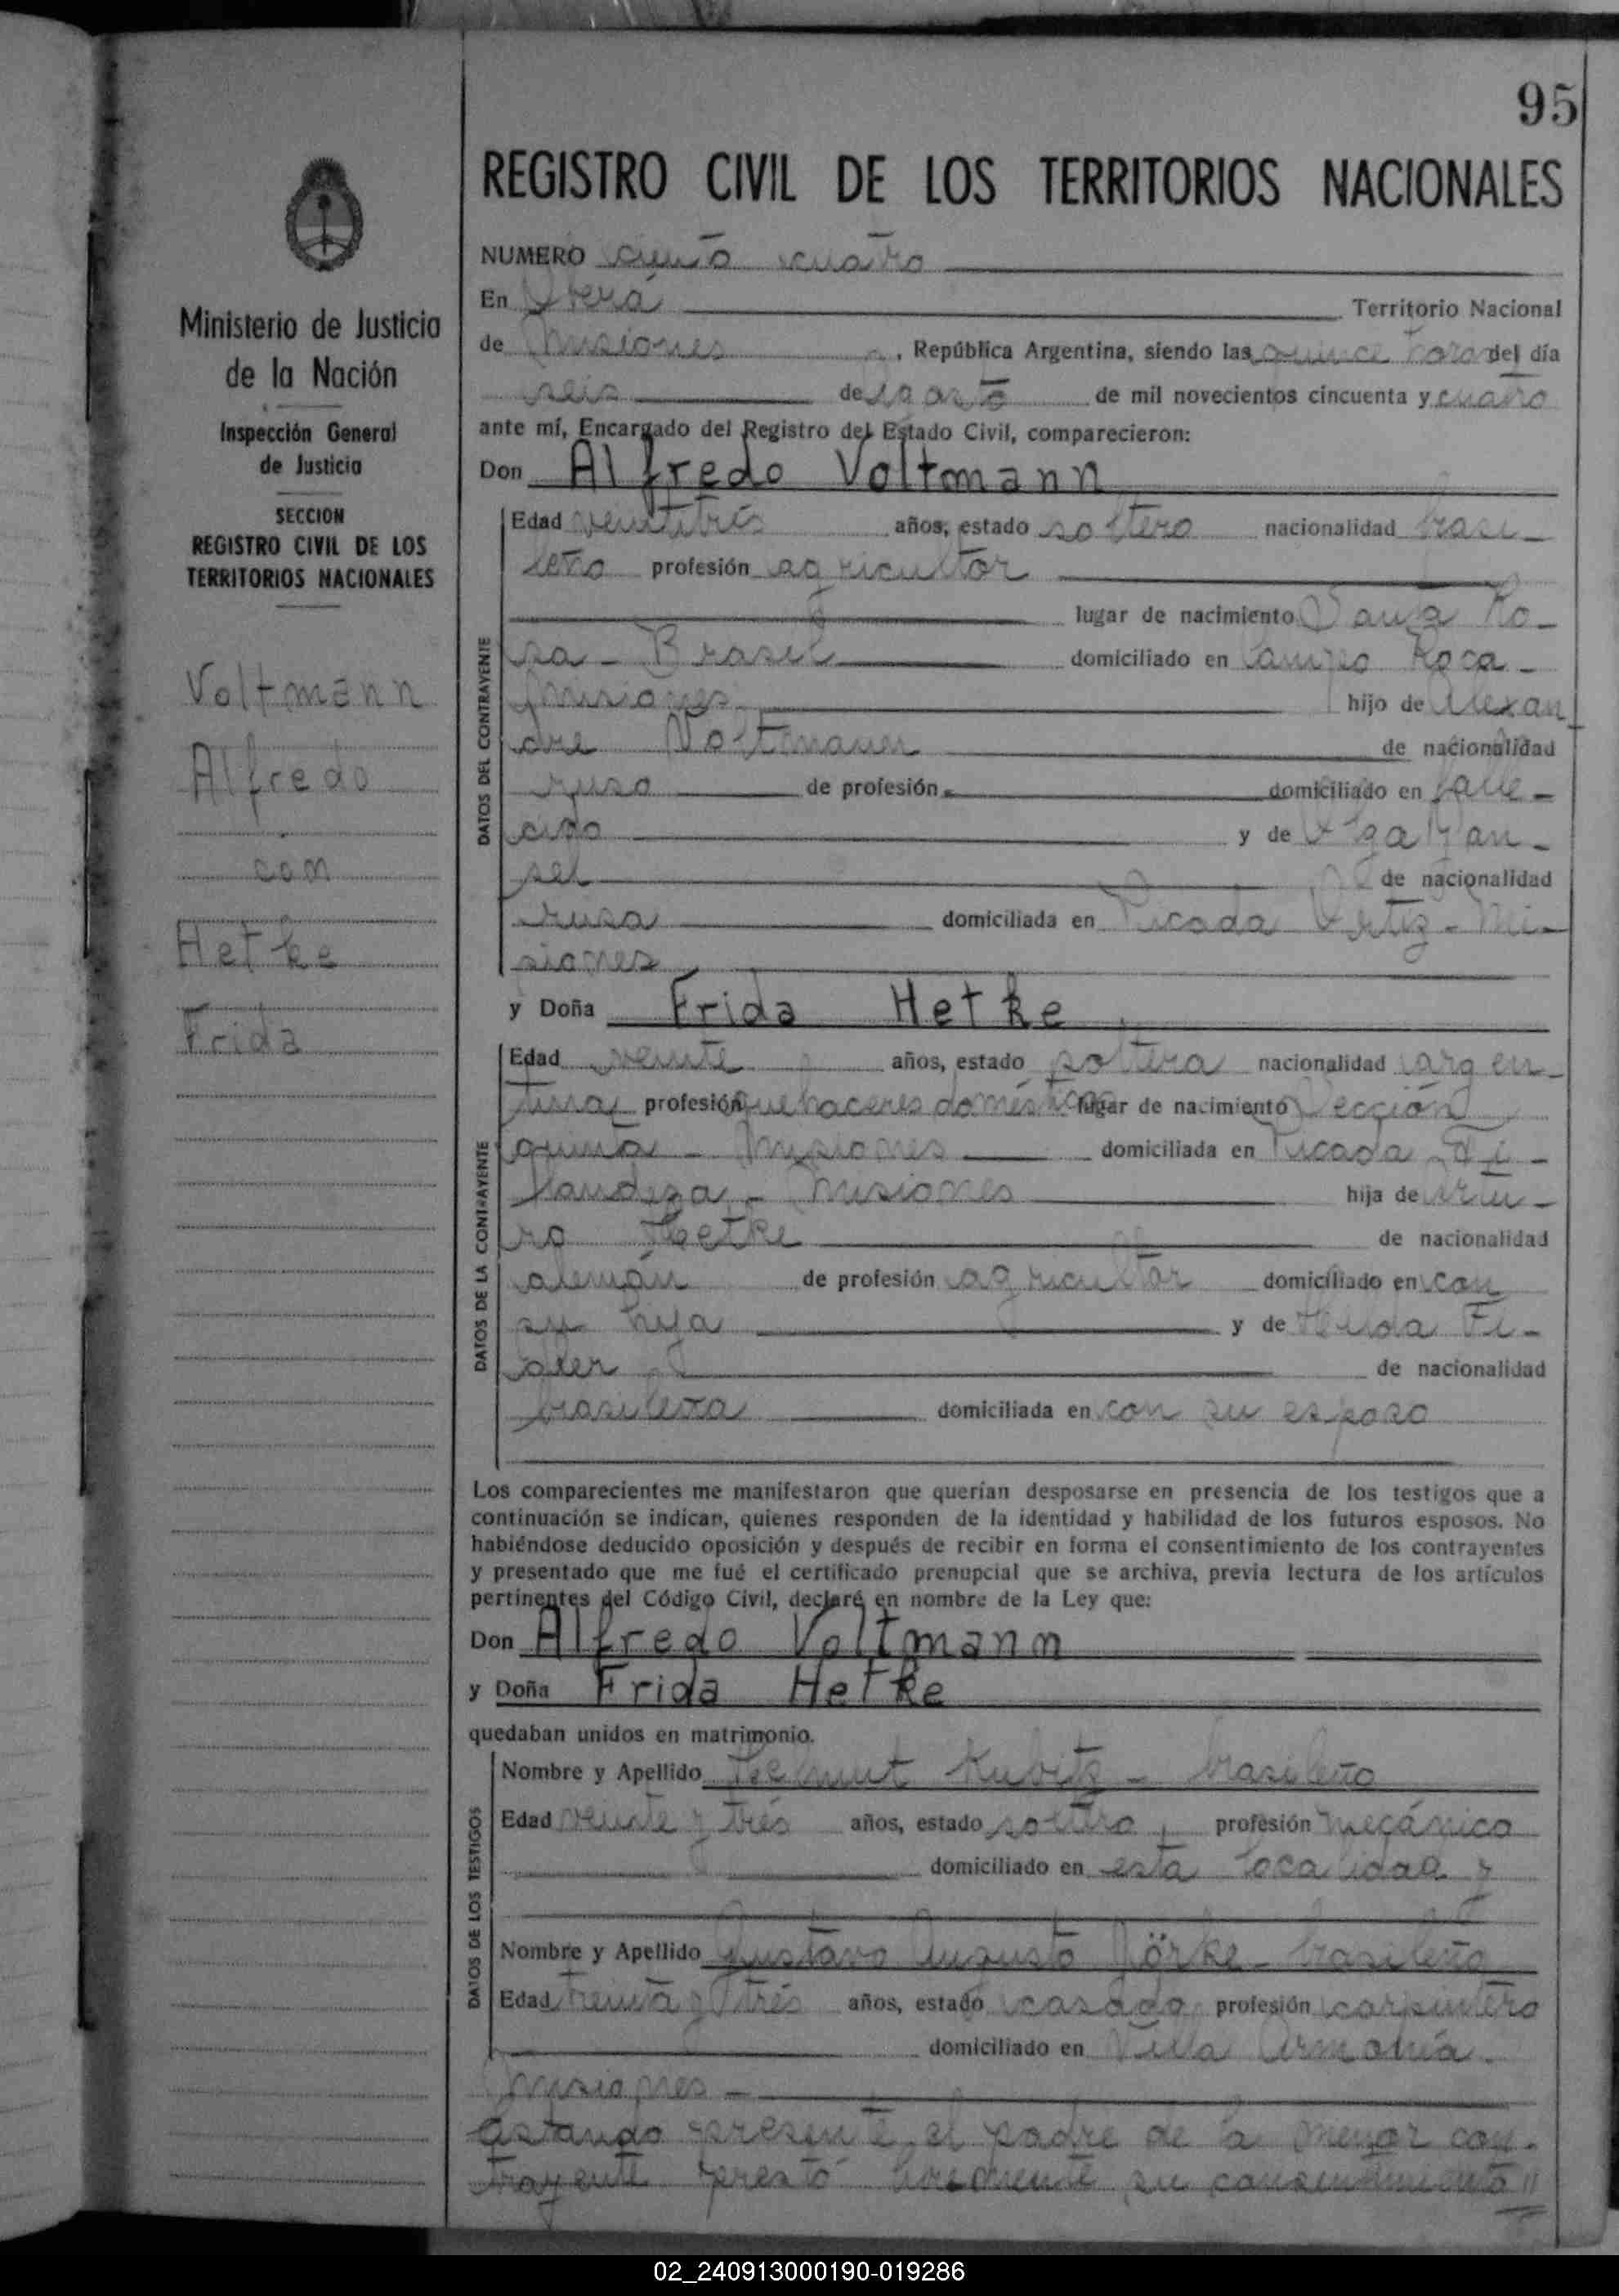 95
REGISTRO CIVIL DE LOS TERRITORIOS NACIONALES
Ministerio de Justicia
de la Nación
Inspección General
de Justicia
SECCION
REGISTRO CIVIL DE LOS
TERRITORIOS NACIONALES
Voltmann
Alfredo
con
Hetke
Frida
NUMERO ciento cuatro
En Oberá Territorio Nacional
de Misiones, República Argentina, siendo las quince horas del día
seis de agosto de mil novecientos cincuenta y cuatro
ante mí, Encargado del Registro del Estado Civil, comparecieron:
Don Alfredo Voltmann
DATOS DEL CONTRAYENTE
Edad veintitrés años, estado soltero nacionalidad brasi-
leño profesión agricultor
lugar de nacimiento Santa Ro-
sa - Brasil domiciliado en Campo Roca -
Misiones hijo de Alexan
dre Voltmann de nacionalidad
ruso de profesión domiciliado en falle-
cido y de Olga
sel de nacionalidad
rusa domiciliada en Picada Ortiz - Mi-
siones
y Doña Frida Hetke
DATOS DE LA CONTRAYENTE
Edad veinte años, estado soltera nacionalidad argen-
tina profesión quehaceres domésticos lugar de nacimiento Sección
quinta - Misiones domiciliada en Picada Fi-
landeza - Misiones hija de
Hetke de nacionalidad
alemán de profesión agricultor domiciliado en con
su hija y de Fi-
dler de nacionalidad
brasileña domiciliada en con su esposo
Los comparecientes me manifestaron que querían desposarse en presencia de los testigos que a
continuación se indican, quienes responden de la identidad y habilidad de los futuros esposos. No
habiéndose deducido oposición y después de recibir en forma el consentimiento de los contrayentes
y presentado que me fué el certificado prenupcial que se archiva, previa lectura de los artículos
pertinentes del Código Civil, declaré en nombre de la Ley que:
Don Alfredo Voltmann
y Doña Frida Hetke
quedaban unidos en matrimonio.
DATOS DE LOS TESTIGOS
Nombre y Apellido Helmut Kubitz - brasileño
Edad veinte y trés años, estado soltero, profesión mecánico
domiciliado en esta localidad y
Nombre y Apellido Gustavo Augusto - brasileño
Edad treinta y trés años, estado casado profesión carpintero
domiciliado en Villa Armonía -
Misiones -
Estando presente el padre de la menor con-
trayente prestó libremente su consentimiento
02_240913000190-019286